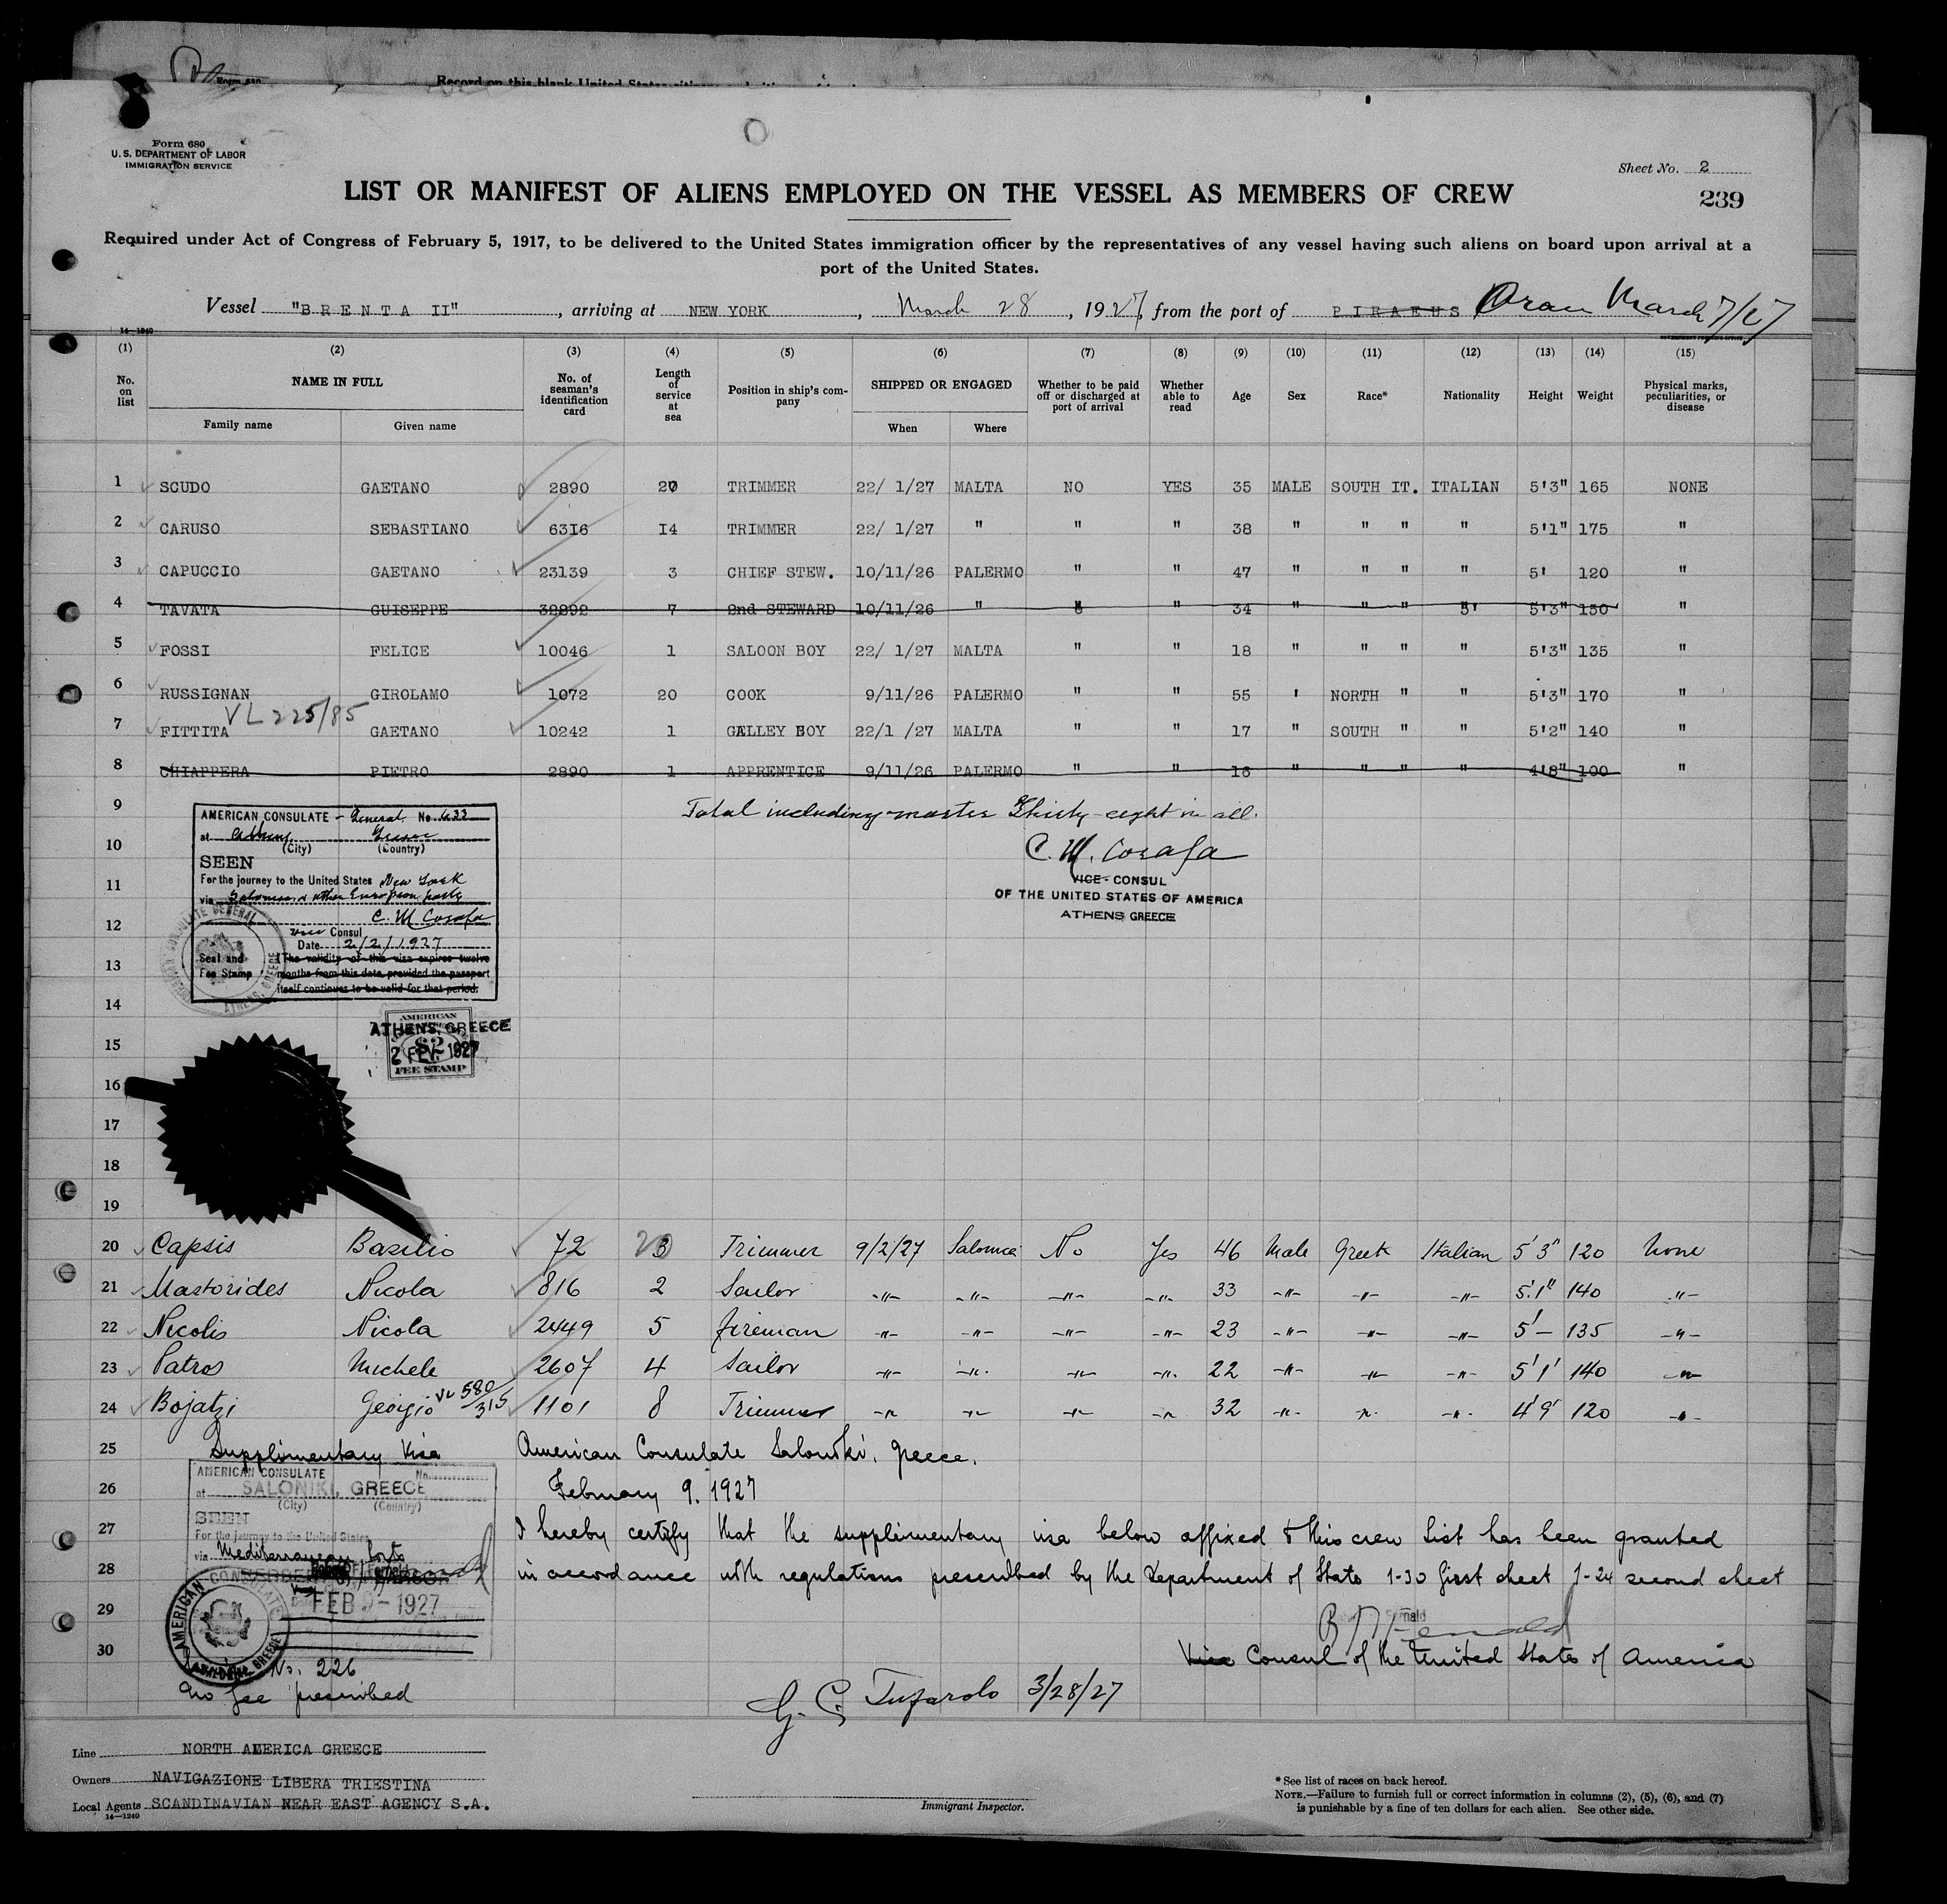 Form 680
U. S. DEPARTMENT OF LABOR
IMMIGRATION SERVICE
Sheet No. 2
239
LIST OR MANIFEST OF ALIENS EMPLOYED ON THE VESSEL AS MEMBERS OF CREW
Required under Act of Congress of February 5, 1917, to be delivered to the United States immigration officer by the representatives of any vessel having such aliens on board upon arrival at a
port of the United States.
Vessel "BRENTA II", arriving at NEW YORK, March 28, 1927, from the port of PIRAEUS Oran March 7/27
14-1240
(1) (2) (3) (4) (5) (6) (7) (8) (9) (10) (11) (12) (13) (14) (15)
No. on list NAME IN FULL Family name Given name No. of seaman's identification card Length of service at sea Position in ship's company SHIPPED OR ENGAGED When Where Whether to be paid off or discharged at port of arrival Whether able to read Age Sex Race* Nationality Height Weight Physical marks, peculiarities, or disease
1 SCUDO GAETANO 2890 20 TRIMMER 22/ 1/27 MALTA NO YES 35 MALE SOUTH IT. ITALIAN 5'3" 165 NONE
2 CARUSO SEBASTIANO 6316 14 TRIMMER 22/ 1/27 " " " 38 " " " " 5'1" 175 "
3 CAPUCCIO GAETANO 23139 3 CHIEF STEW. 10/11/26 PALERMO " " 47 " " " " 5' 120 "
4 TAVATA GUISEPPE 32892 7 2nd STEWARD 10/11/26 " " " 34 " " " 5' 5'3" 150 "
5 FOSSI FELICE 10046 1 SALOON BOY 22/ 1/27 MALTA " " 18 " " " " 5'3" 135 "
6 RUSSIGNAN GIROLAMO 1072 20 COOK 9/11/26 PALERMO " " 55 ' NORTH " " 5'3" 170 "
VL 225/85
7 FITTITA GAETANO 10242 1 GALLEY BOY 22/1 /27 MALTA " " 17 " SOUTH " " 5'2" 140 "
8 CHIAPPERA PIETRO 2890 1 APPRENTICE 9/11/26 PALERMO " " 16 " " " " 4'8" 100 "
9 Total including master Thirty-eight in all.
10 C. M. Corafa
11 VICE-CONSUL
OF THE UNITED STATES OF AMERICA
12 ATHENS GREECE
AMERICAN CONSULATE - General No. 433
at Athens Greece
(City) (Country)
SEEN
For the journey to the United States New York
via Salonica & other European ports
C. M. Corafa
vice Consul
Date 2/2/1927
Seal and Fee Stamp
The validity of this visa expires twelve
months from this date, provided the passport
itself continues to be valid for that period.
13
14
AMERICAN
ATHENS, GREECE
$2
2 FEV. 1927
FEE STAMP
15
16
17
18
19
20 Capsis Basilio 72 23 Trimmer 9/2/27 Salonica No Yes 46 Male Greek Italian 5'3" 120 None
21 Mastorides Nicola 816 2 Sailor -"- -"- -"- -"- 33 -"- -"- -"- 5'.1" 140 -"-
22 Nicolis Nicola 2449 5 Fireman -"- -"- -"- -"- 23 -"- -"- -"- 5'- 135 -"-
23 Patros Michele 2607 4 Sailor -"- -"- -"- -"- 22 -"- -"- -"- 5'1' 140 -"-
24 Bojatzi Georgio VL 580/315 1101 8 Trimmer -"- -"- -"- -"- 32 -"- -"- -"- 4'9' 120 -"-
25 Supplimentary Visa American Consulate Saloniki, Greece.
26 February 9. 1927
27 I hereby certify that the supplimentary visa below affixed to this crew list has been granted
28 in accordance with regulations prescribed by the Department of State 1-30 first sheet 1-24 second sheet
29
30 Vice Consul of the United States of America
AMERICAN CONSULATE No.
at SALONIKI, GREECE
(City) (Country)
SEEN
For the journey to the United States
via Mediterranean Ports
FEB 9 - 1927
AMERICAN CONSULATE
No. 226
No fee prescribed
G. C. Tufarolo 3/28/27
Line NORTH AMERICA GREECE
Owners NAVIGAZIONE LIBERA TRIESTINA
Local Agents SCANDINAVIAN NEAR EAST AGENCY S.A.
14-1240
Immigrant Inspector.
* See list of races on back hereof.
NOTE.—Failure to furnish full or correct information in columns (2), (5), (6), and (7)
is punishable by a fine of ten dollars for each alien. See other side.